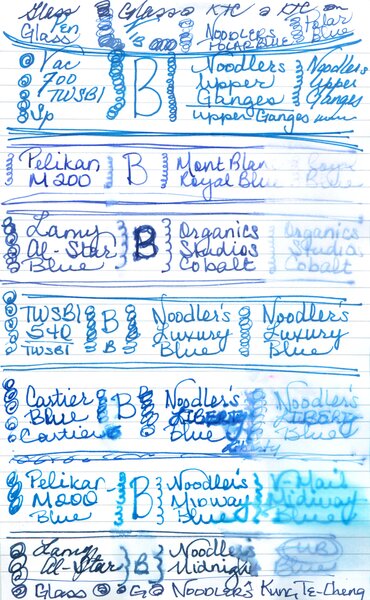 Glass Glass KTC KTC
Pen Polar
Glass B Noodlers Blue
POLAR BLUE
Vac Noodlers Noodlers
700 B Upper Upper
TWSBI Ganges Ganges
Upper Ganges
Pelikan B Mont Blan Royal
M200 Royal Blue Blue
Lamy Organics Organics
Al-Star B Studios Studios
Blue Cobalt Cobalt
TWSBI Noodler's Noodler's
540 B Luxury Luxury
TWSBI B Blue Blue
Cartier B Noodler's Noodler's
Blue B LIBERTY LIBERTY
Cartier Blue Blue
Liberty
Pelikan Noodler's V-Mail
M200 B Midway Midway
Blue Blue Blue
Lamy Noodler's
Al-Star B Midnight Blue
Glass G Noodler's Kung Te-Cheng